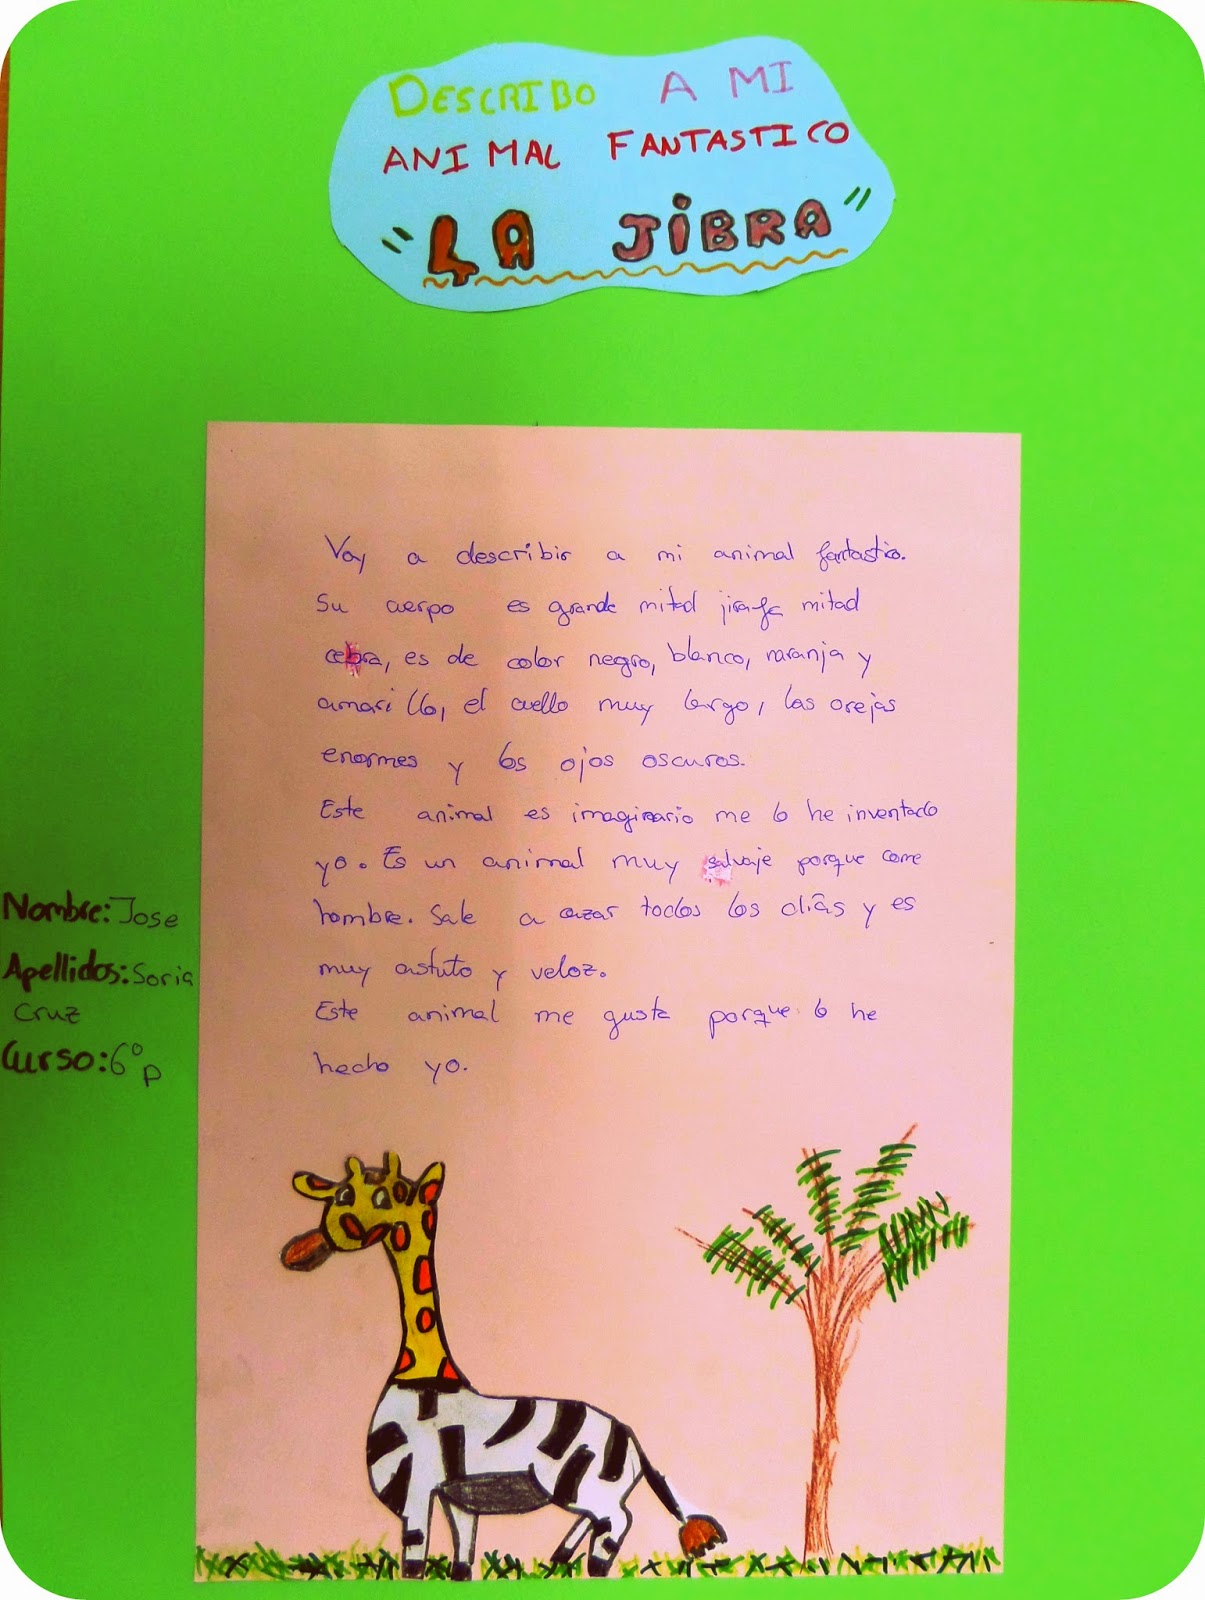 DESCRIBO A MI
ANIMAL FANTASTICO
"LA JIBRA"
Voy a describir a mi animal fantastico.
Su cuerpo es grande mitad jirafa mitad
cebra, es de color negro, blanco, naranja y
amarillo, el cuello muy largo, las orejas
enormes y los ojos oscuros.
Este animal es imaginario me lo he inventado
yo. Es un animal muy salvaje porque come
hombre. Sale a cazar todos los días y es
muy astuto y veloz.
Este animal me gusta porque lo he
hecho yo.
Nombre: Jose
Apellidos: Soria
Cruz
Curso: 6º P